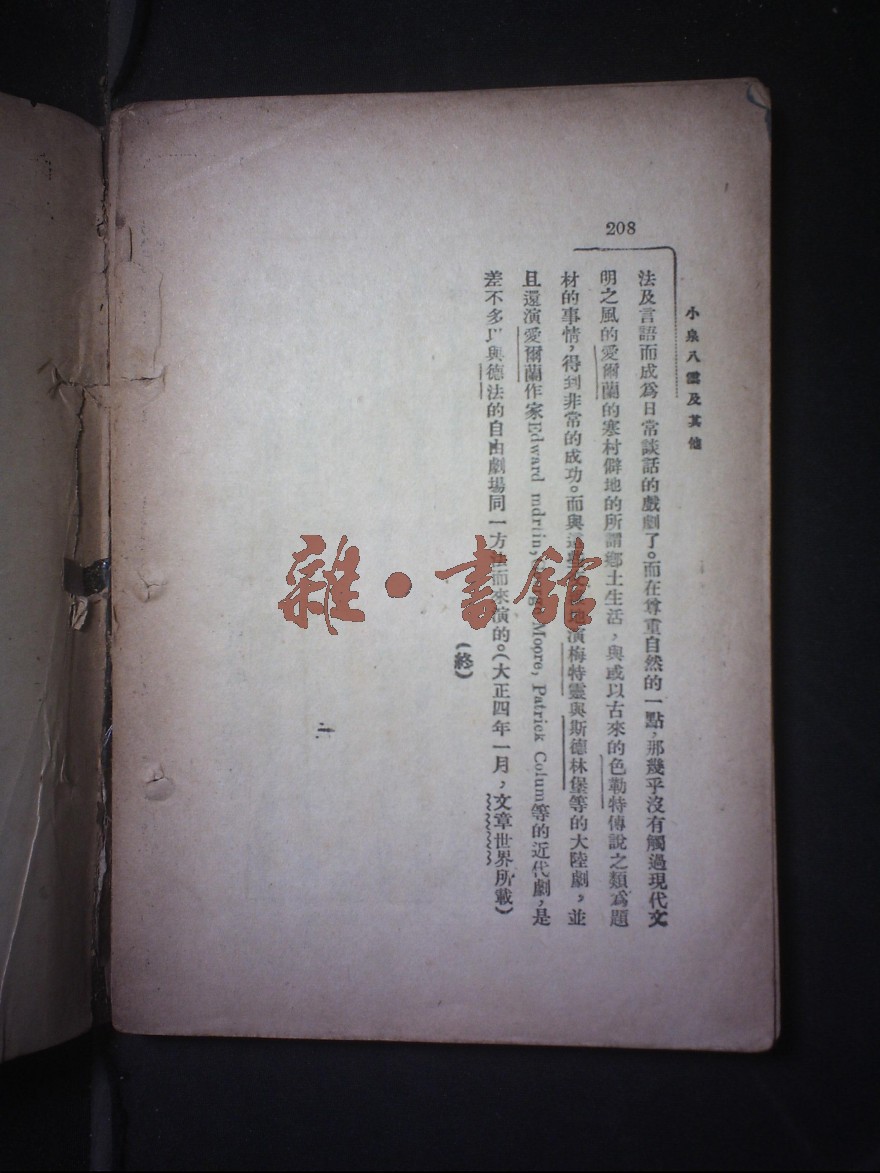 小泉八雲及其他
208
法及言語而成爲日常談話的戲劇了。而在尊重自然的一點,那幾乎沒有觸過現代文
明之風的愛爾蘭的寒村僻地的所謂鄉土生活,與或以古來的色勒特傳說之類爲題
材的事情,得到非常的成功。而與這 演梅特靈與斯德林堡等的大陸劇,並
且還演愛爾蘭作家Edward mdrtin, Moore, Patrick Colum等的近代劇,是
差不多以與德法的自由劇場同一方法而來演的。(大正四年一月,文章世界所載)
(終)
雜·書館